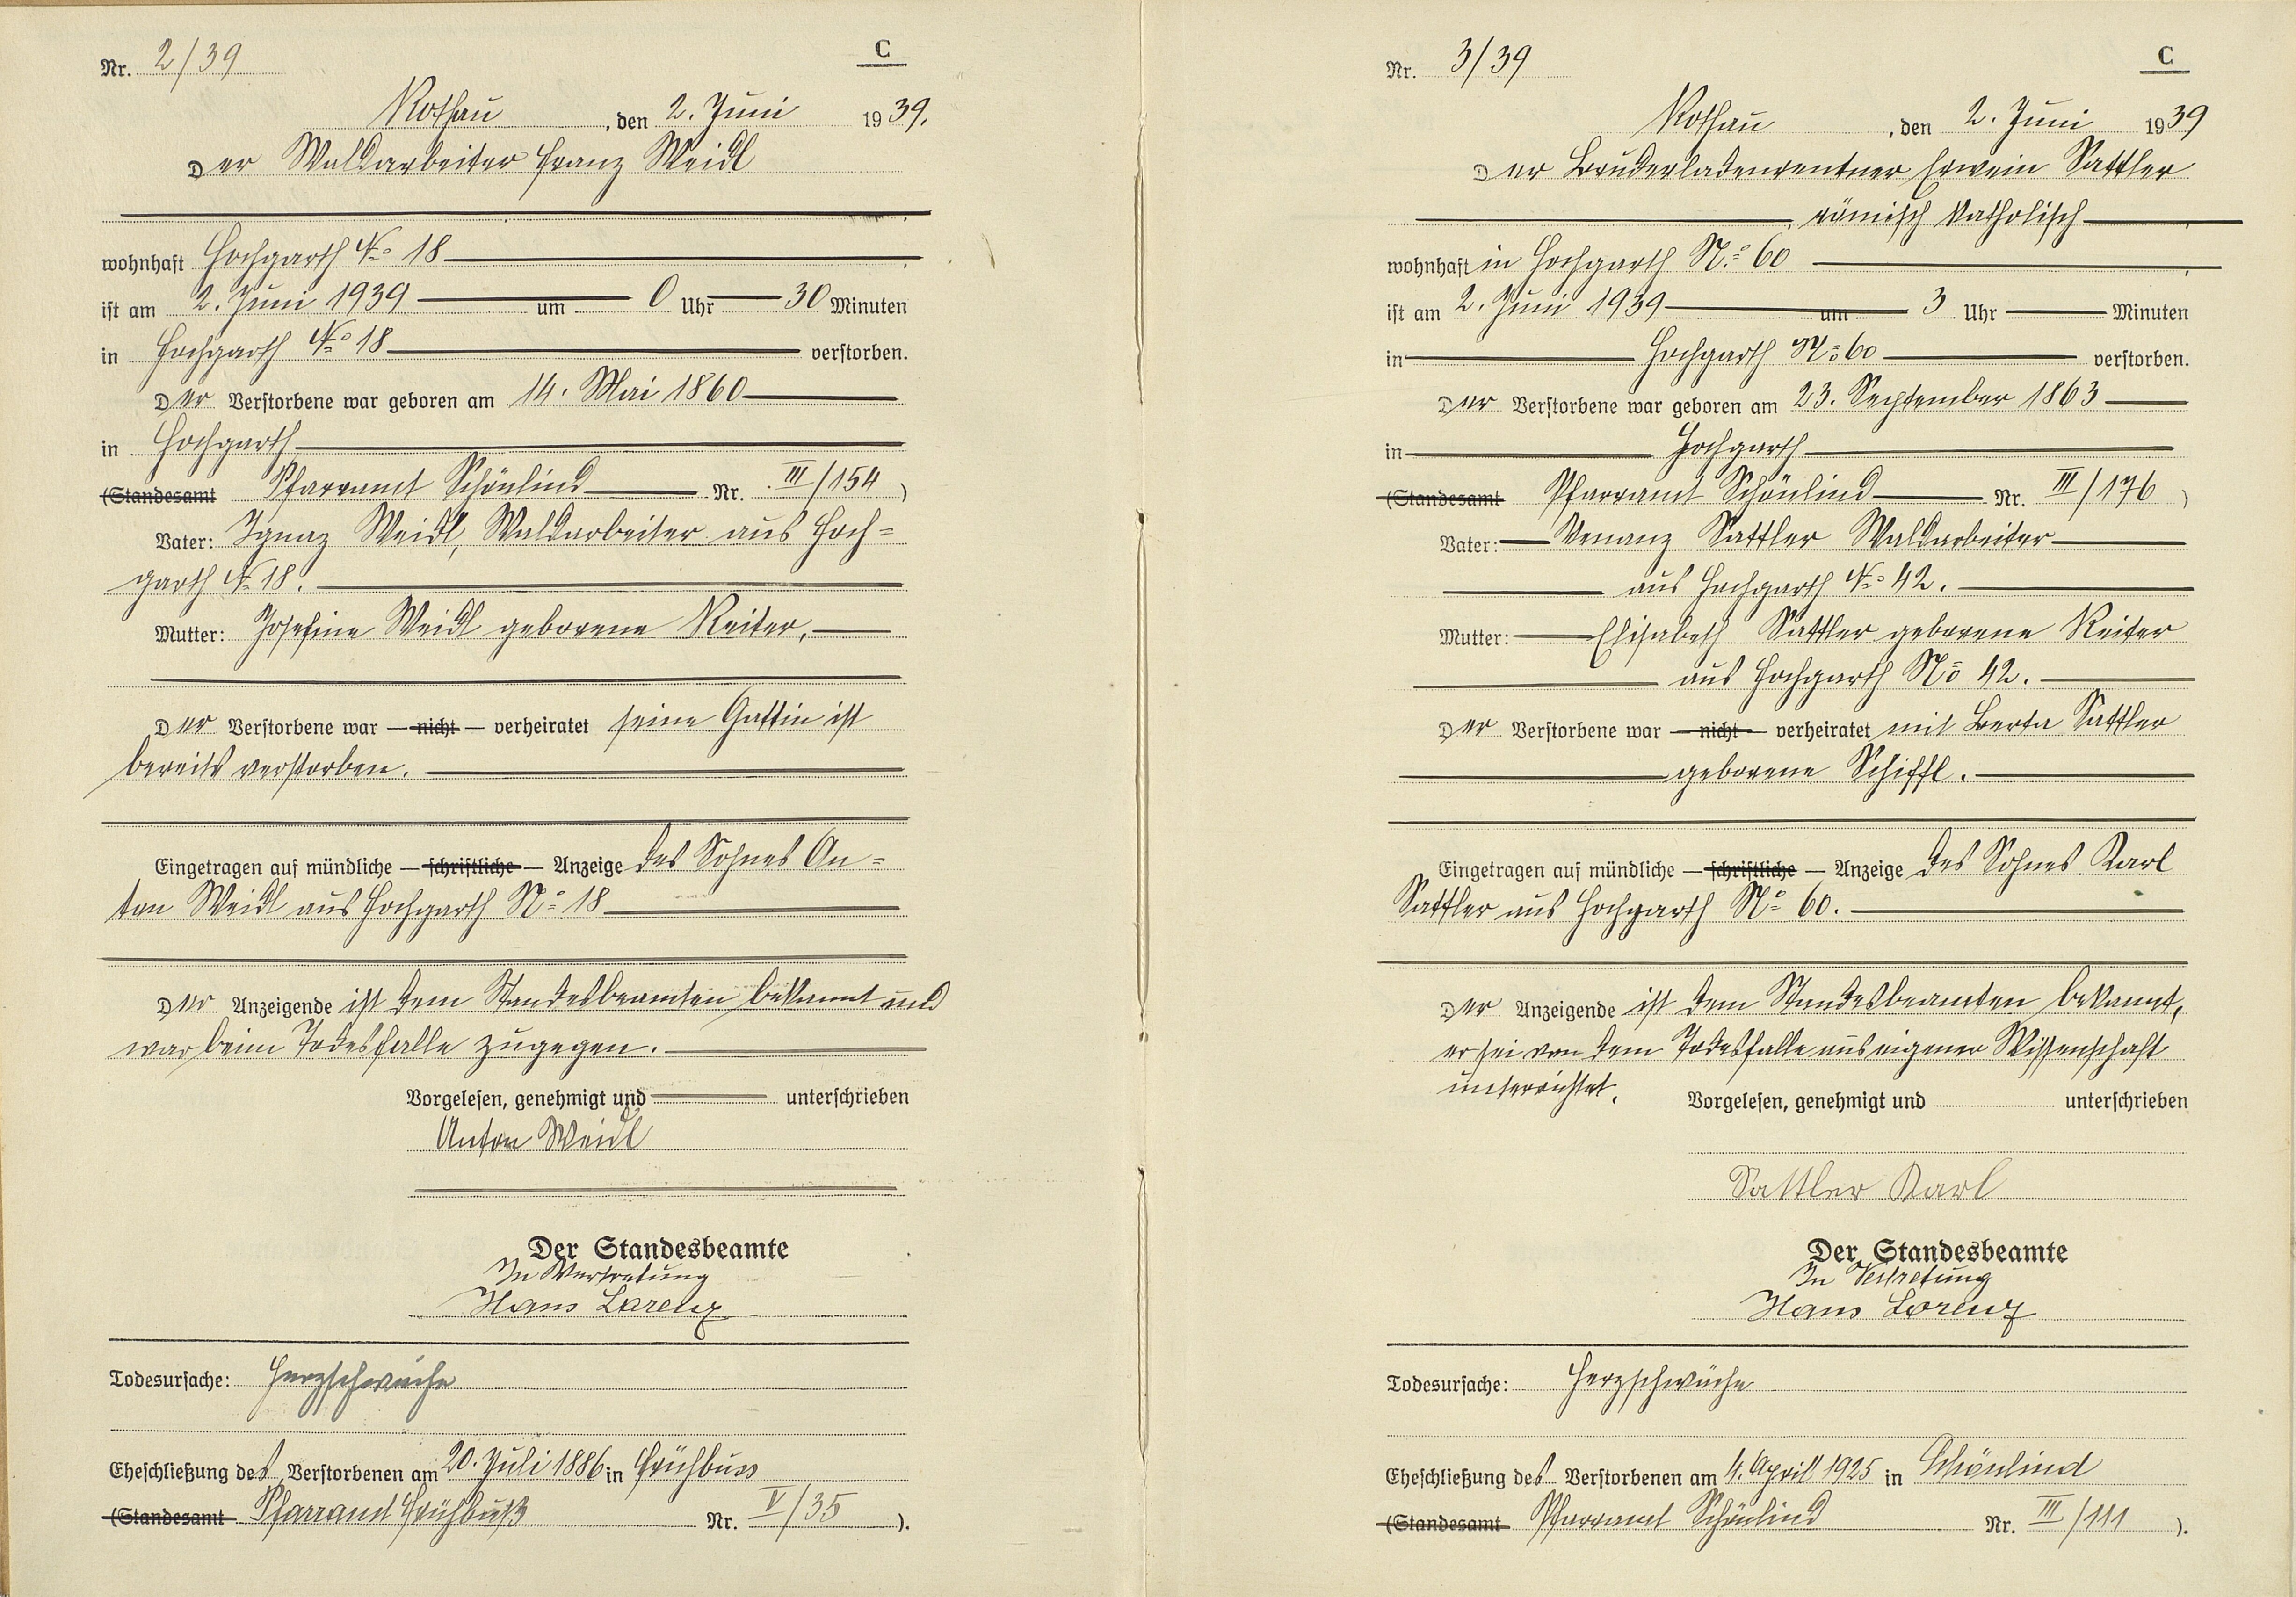 Nr. 2/39
C
Rothau, den 2. Juni 1939.
Der Waldarbeiter Franz Weidl
wohnhaft Hochgarth No 18
ist am 2. Juni 1939 um 0 Uhr 30 Minuten
in Hochgarth No 18 verstorben.
Der Verstorbene war geboren am 14. Mai 1860
in Hochgarth
(Standesamt Pfarramt Schönlind Nr. III/154)
Vater: Ignaz Weidl, Waldarbeiter aus Hoch=
garth No 18.
Mutter: Josefine Weidl geborene Reiter,
Der Verstorbene war — nicht — verheiratet seine Gattin ist
bereits verstorben.
Eingetragen auf mündliche — schriftliche — Anzeige des Sohnes An=
ton Weidl aus Hochgarth No 18
Der Anzeigende ist dem Standesbeamten bekannt und
war beim Todesfalle zugegen.
Vorgelesen, genehmigt und unterschrieben
Anton Weidl
Der Standesbeamte
In Vertretung
Hans Lorenz
Todesursache: Herzschwäche
Eheschließung des Verstorbenen am 20. Juli 1886 in Frühbuss
(Standesamt Pfarramt Frühbuß Nr. V/35).
Nr. 3/39
C
Rothau, den 2. Juni 1939
Der Bruderladenrentner Erwein Sattler
römisch katholisch
wohnhaft in Hochgarth No 60
ist am 2. Juni 1939 um 3 Uhr Minuten
in Hochgarth No 60 verstorben.
Der Verstorbene war geboren am 23. September 1863
in Hochgarth
(Standesamt Pfarramt Schönlind Nr. III/176)
Vater: Venanz Sattler Waldarbeiter
aus Hochgarth No 42.
Mutter: Elisabeth Sattler geborene Reiter
aus Hochgarth No 42.
Der Verstorbene war — nicht — verheiratet mit Berta Sattler
geborene Schiffl.
Eingetragen auf mündliche — schriftliche — Anzeige des Sohnes Karl
Sattler aus Hochgarth No 60.
Der Anzeigende ist dem Standesbeamten bekannt,
er sei von dem Todesfalle aus eigener Wissenschaft
unterrichtet.
Vorgelesen, genehmigt und unterschrieben
Sattler Karl
Der Standesbeamte
In Vertretung
Hans Lorenz
Todesursache: Herzschwäche
Eheschließung des Verstorbenen am 4. April 1925 in Schönlind
(Standesamt Pfarramt Schönlind Nr. III/111).